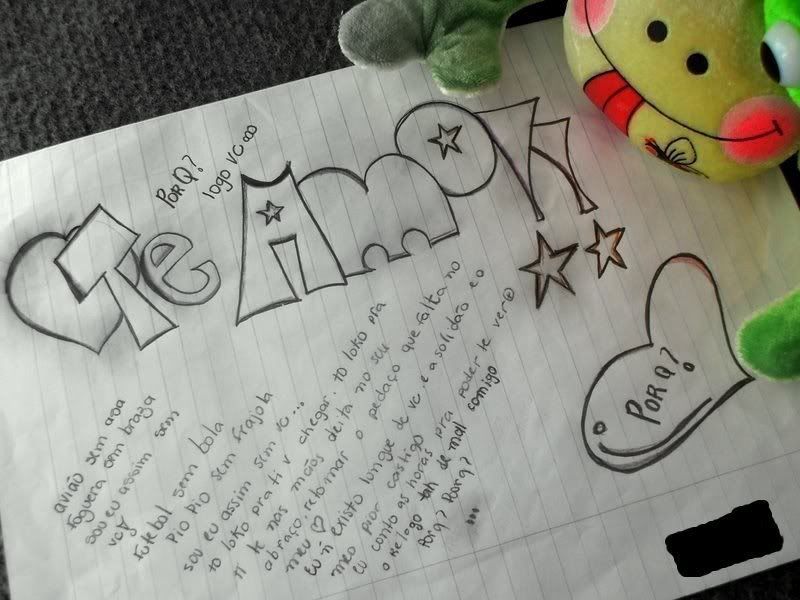 PORQ?
logo vc ∞
Te AmO
avião sem asa
foguera sem braza
sou eu assim sem
vc
futebol sem bola
Pio Pio sem frajola
sou eu assim sem vc...
to loko pra ti v chegar. to loko pra
ti te nas mãos deita no seu
abraço.retomar o pedaço que falta no
meu ♡
Eu ñ existo longe de vc. e a solidão e o
meu pior castigo
eu conto as horas pra poder te ver
o Relogo tah de mal comigo
Porq? Porq?
...
PORQ?